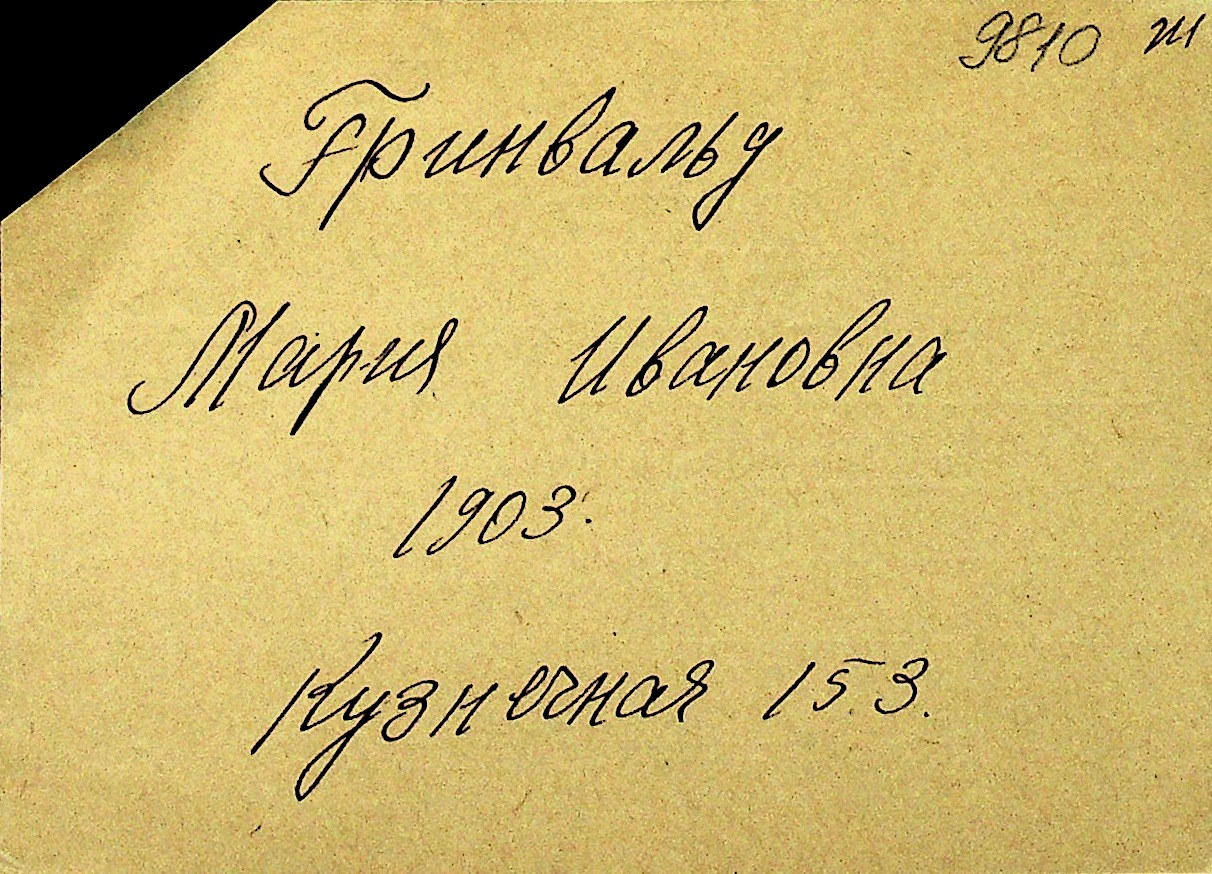 9810 ж
Гринвальд
Мария Ивановна
1903.
Кузнечная 153.